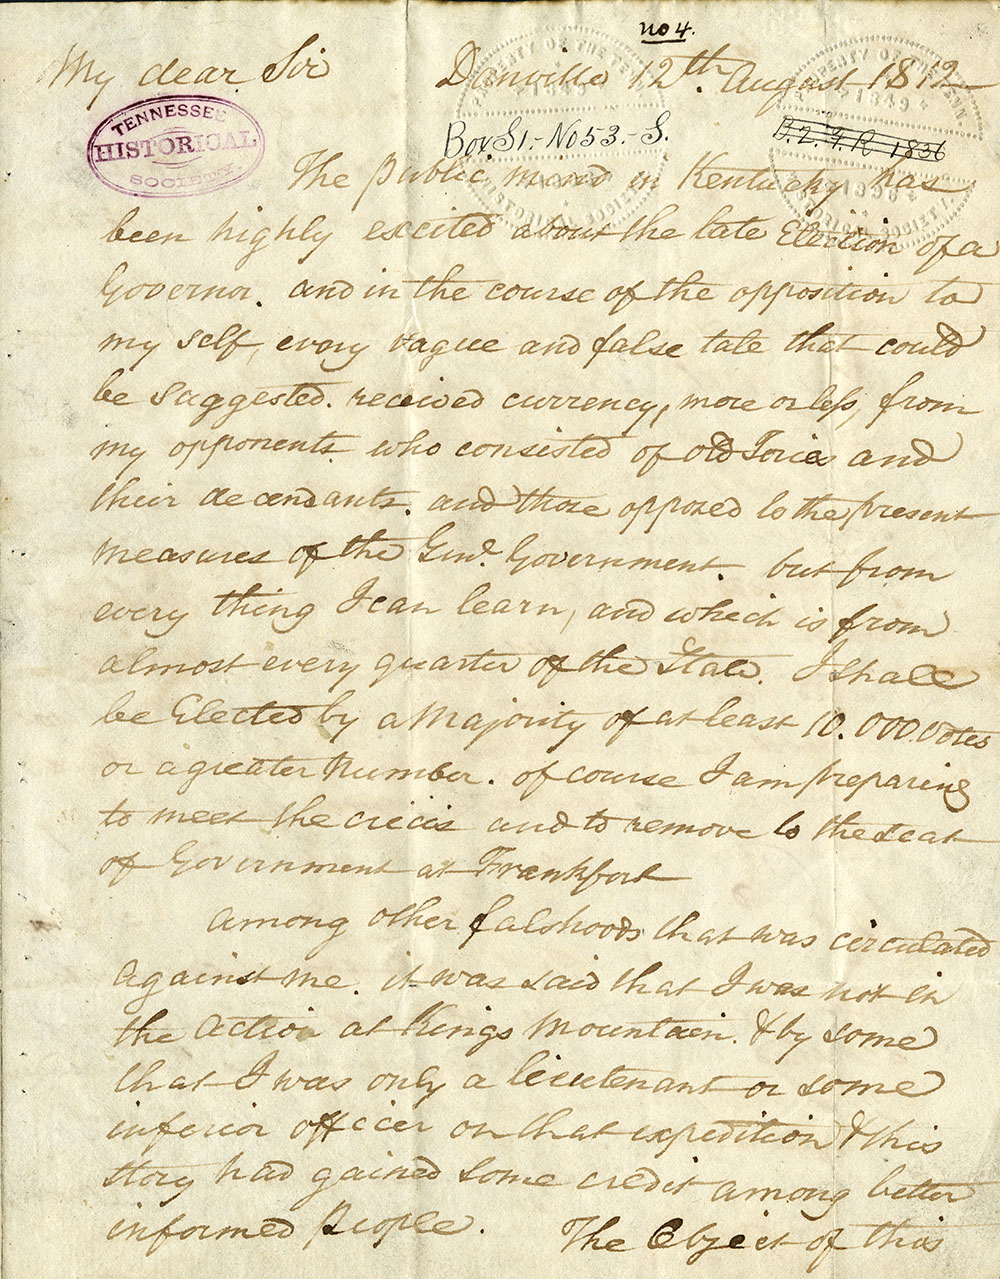 no 4.
My dear Sir Danville 12th. August 1812
TENNESSEE
HISTORICAL
SOCIETY.
PROPERTY OF THE TENN
1849
HISTORICAL SOCIETY
Box S1.- No 53.- S.
PROPERTY OF THE TENN
1849
HISTORICAL SOCIETY.
1836
The Public mind in Kentucky has
been highly excited about the late Election of a
Governor. and in the course of the opposition to
my self, every vague and false tale that could
be suggested. received currency, more or less, from
my opponents who consisted of old Tories and
their decendants. and those opposed to the present
measures of the Genl. Government. but from
every thing I can learn, and which is from
almost every quarter of the State. I shall
be Elected by a Majority of at least 10.000 Votes
or a greater Number. of course I am preparing
to meet the cricis and to remove to the seat
of Government at Frankfort
Among other falshoods that was circulated
against me. it was said that I was not in
the Action at Kings Mountain. & by some
that I was only a lieutenant or some
inferior officer on that expedition & this
story had gained some credit among better
informed People. The Object of this